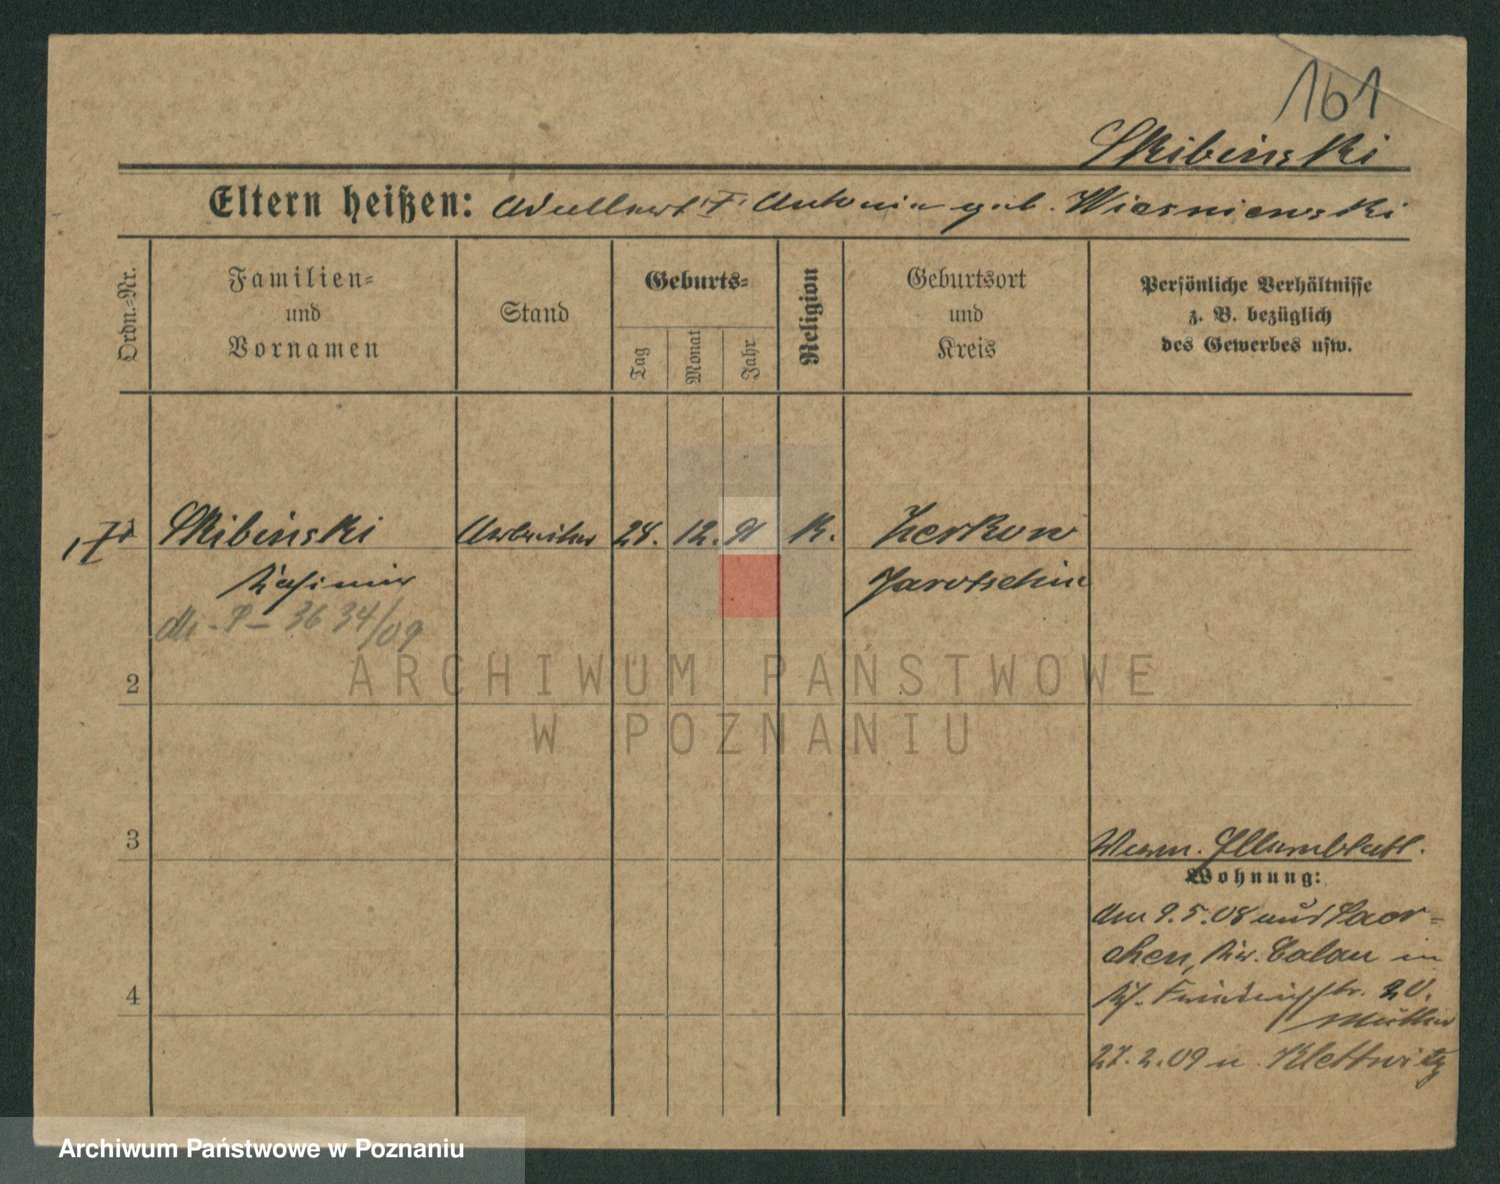 161
Skibinski
Eltern heißen: Adalbert † Antonia geb. Wiesniewski
Ordn.-Nr.
Familien-
und
Vornamen
Stand
Geburts-
Tag
Monat
Jahr
Religion
Geburtsort
und
Kreis
Persönliche Verhältnisse
z. B. bezüglich
des Gewerbes usw.
Skibinski Arbeiter 24. 12. 91 K. Zerkow
Kasimir Jarotschin
P - 3634/09
2
ARCHIWUM PAŃSTWOWE
W POZNANIU
3
Wohnung:
den 9.5.08 aus
chen, Kr. Calau in
20.
Mutter
27.2.09 n. Klettwitz
4
Archiwum Państwowe w Poznaniu